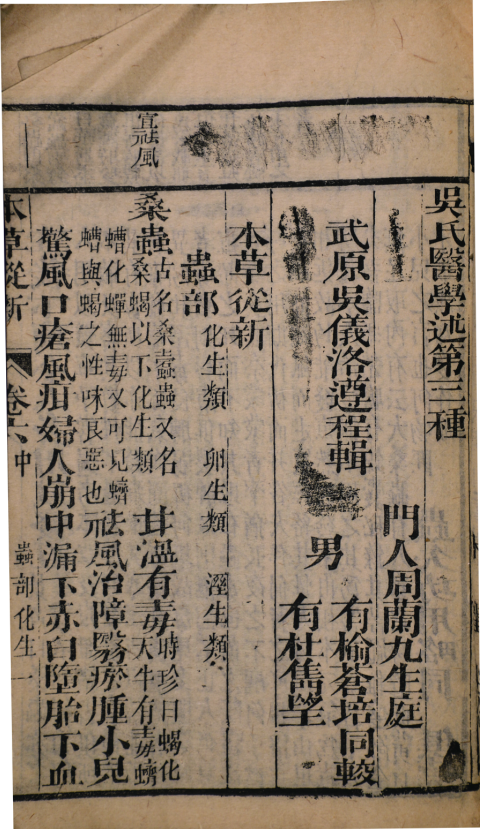 吳氏醫學述第三種
門人周蘭九生庭
武原吳儀洛遵程輯　男　有榆蒼培同較
有杜雋堂
本草從新
蟲部　化生類　卵生類　溼生類
宣祛風
桑蟲　古名桑蠹蟲又名桑蝎以下化生類　甘溫有毒　時珍曰蝎化天牛有毒蠐
螬化蟬無毒又可見蠐螬與蝎之性味良惡也　祛風治障翳瘀腫小兒
驚風口瘡風疳婦人崩中漏下赤白墮胎下血
本草從新　卷六中　蟲部化生一